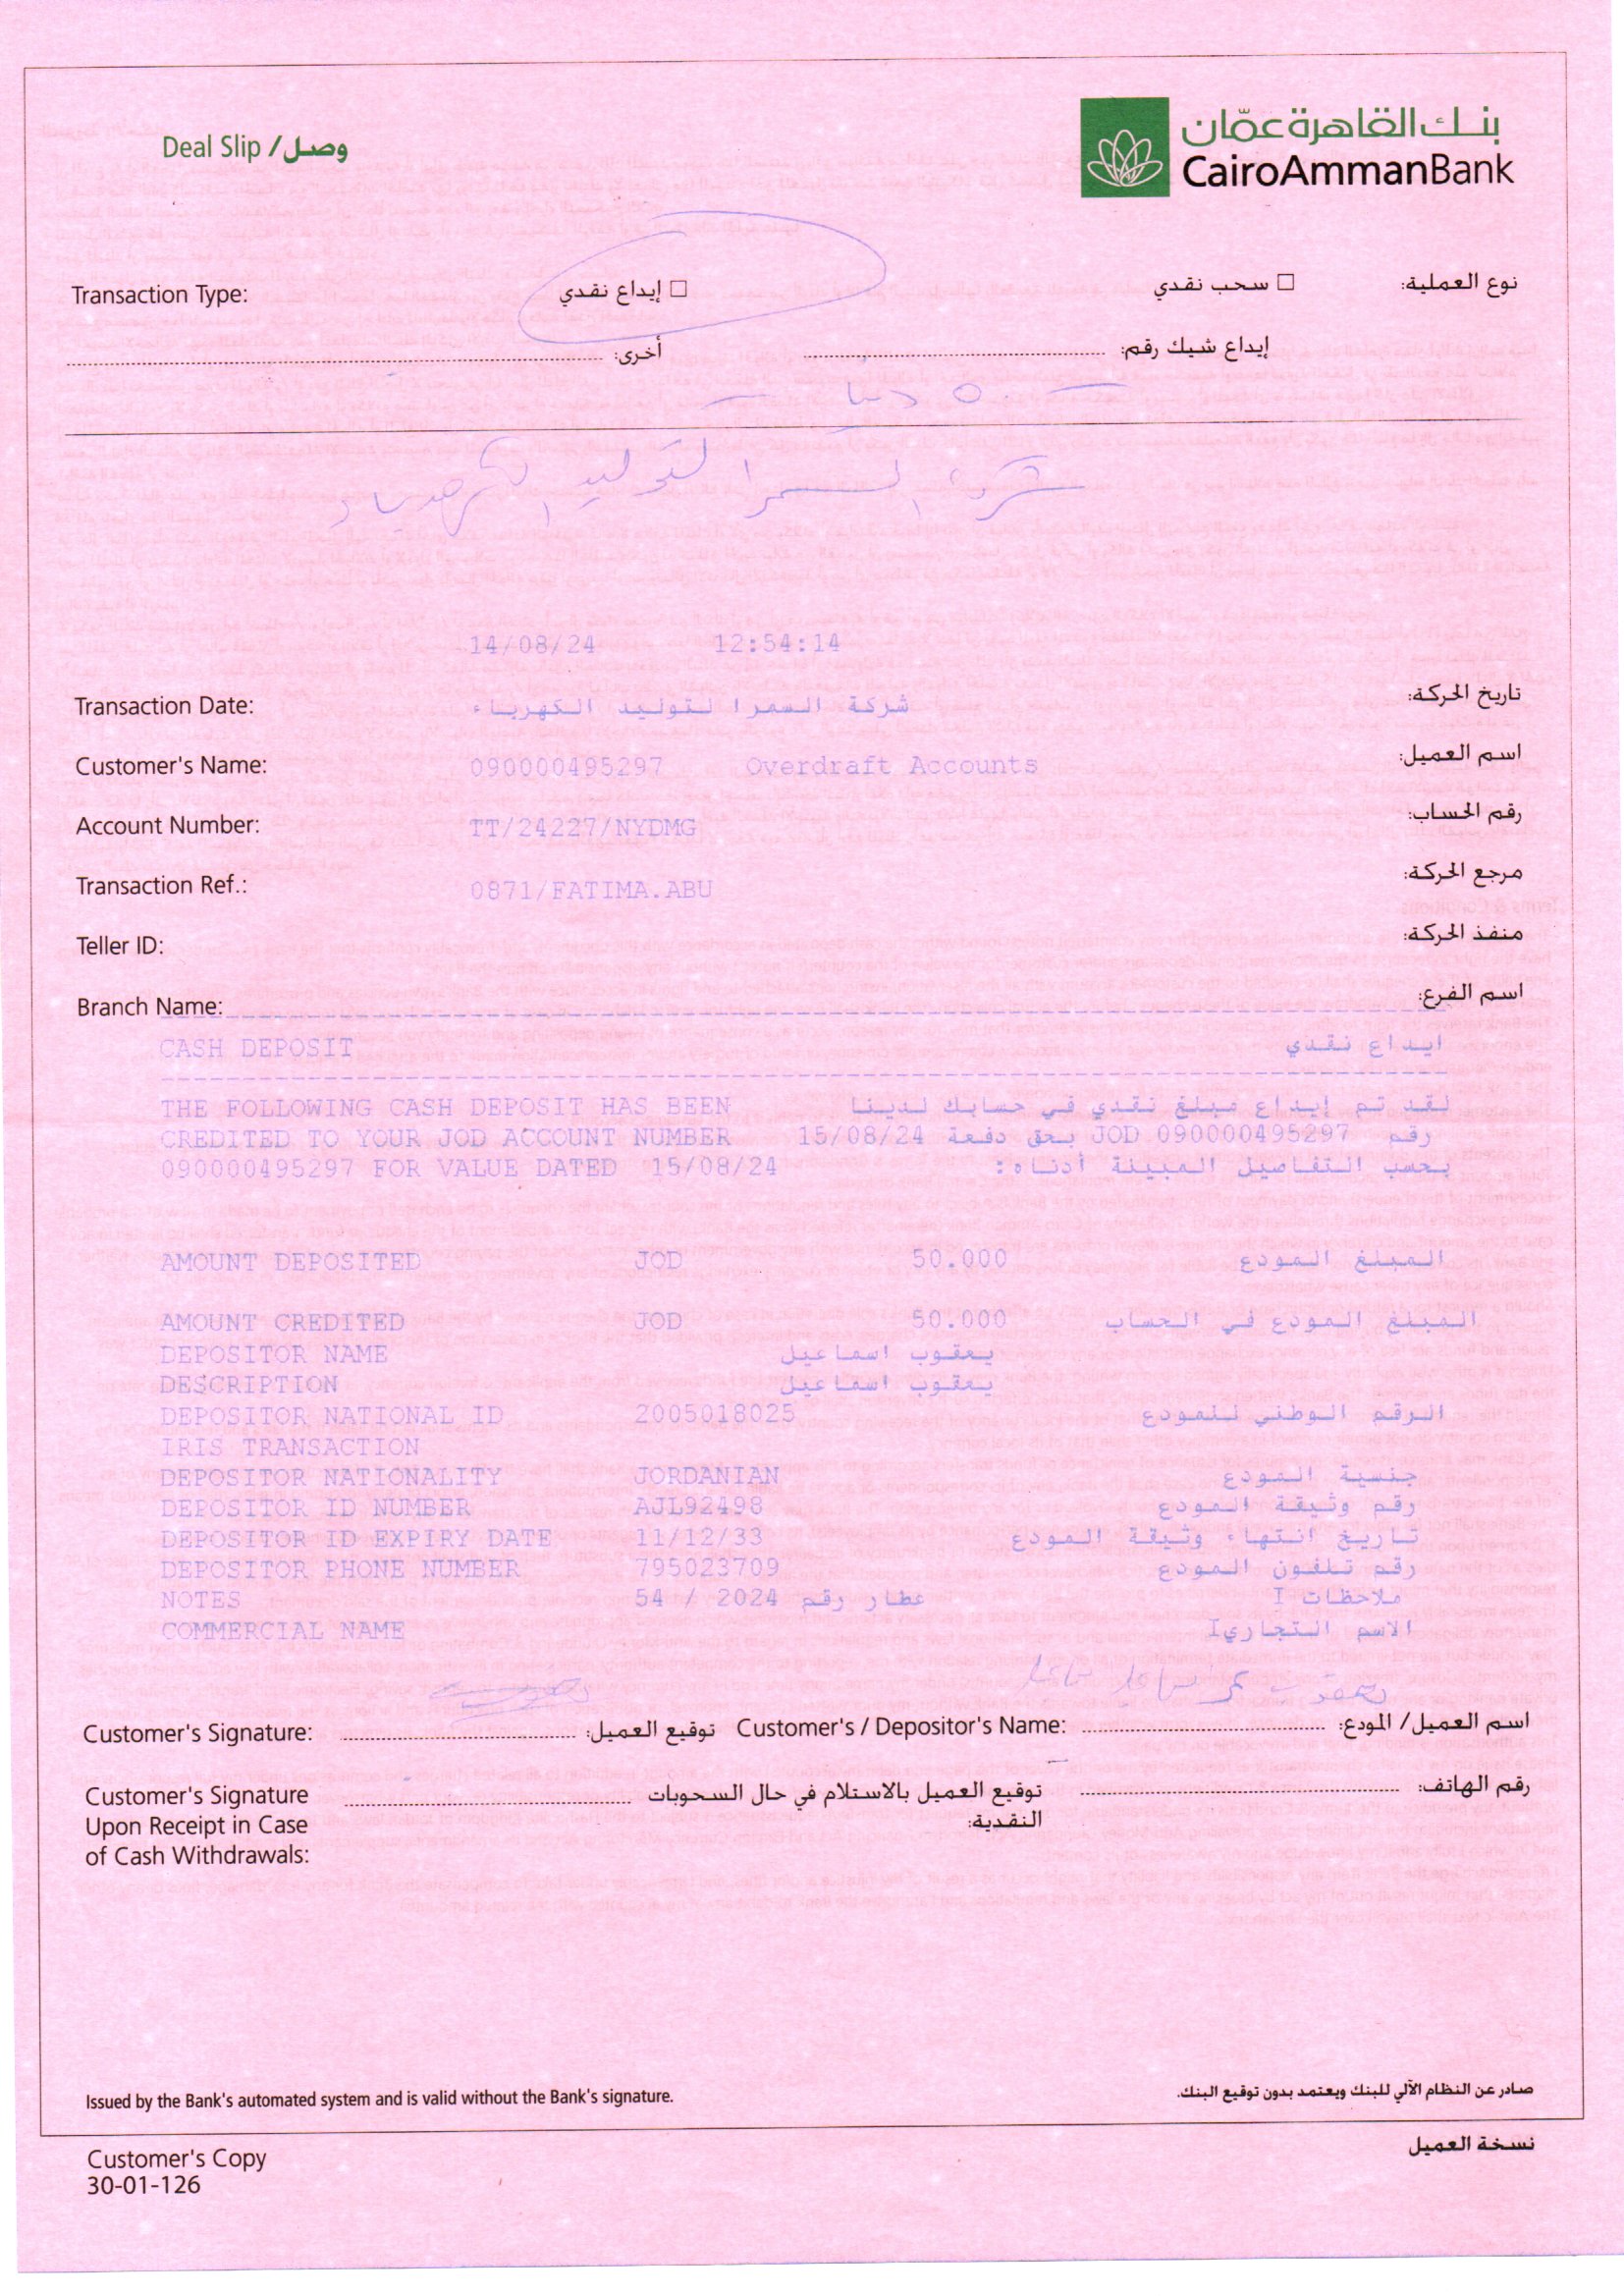 Deal Slip / وصل
بنك القاهرة عمّان
CairoAmmanBank
Transaction Type:
□ إيداع نقدي
□ سحب نقدي
نوع العملية:
أخرى:
إيداع شيك رقم:
٥٠ دينار
شركة السمرا لتوليد الكهرباء
14/08/24 12:54:14
Transaction Date:
شركة السمرا لتوليد الكهرباء
تاريخ الحركة:
Customer's Name:
090000495297 Overdraft Accounts
اسم العميل:
Account Number:
TT/24227/NYDMG
رقم الحساب:
Transaction Ref.:
0871/FATIMA.ABU
مرجع الحركة:
Teller ID:
منفذ الحركة:
Branch Name:
اسم الفرع:
CASH DEPOSIT
ايداع نقدي
THE FOLLOWING CASH DEPOSIT HAS BEEN
لقد تم إيداع مبلغ نقدي في حسابك لدينا
CREDITED TO YOUR JOD ACCOUNT NUMBER
رقم JOD 090000495297 بحق دفعة 15/08/24
090000495297 FOR VALUE DATED 15/08/24
بحسب التفاصيل المبينة أدناه:
AMOUNT DEPOSITED JOD 50.000 المبلغ المودع
AMOUNT CREDITED JOD 50.000 المبلغ المودع في الحساب
DEPOSITOR NAME يعقوب اسماعيل
DESCRIPTION يعقوب اسماعيل
DEPOSITOR NATIONAL ID 2005018025 الرقم الوطني للمودع
IRIS TRANSACTION
DEPOSITOR NATIONALITY JORDANIAN جنسية المودع
DEPOSITOR ID NUMBER AJL92498 رقم وثيقة المودع
DEPOSITOR ID EXPIRY DATE 11/12/33 تاريخ انتهاء وثيقة المودع
DEPOSITOR PHONE NUMBER 795023709 رقم تلفون المودع
NOTES عطار رقم 2024 / 54 ملاحظات I
COMMERCIAL NAME الاسم التجاريI
Customer's Signature:
توقيع العميل:
Customer's / Depositor's Name:
اسم العميل/ المودع:
Customer's Signature
Upon Receipt in Case
of Cash Withdrawals:
توقيع العميل بالاستلام في حال السحوبات
النقدية:
رقم الهاتف:
Issued by the Bank's automated system and is valid without the Bank's signature.
صادر عن النظام الآلي للبنك ويعتمد بدون توقيع البنك.
Customer's Copy
30-01-126
نسخة العميل